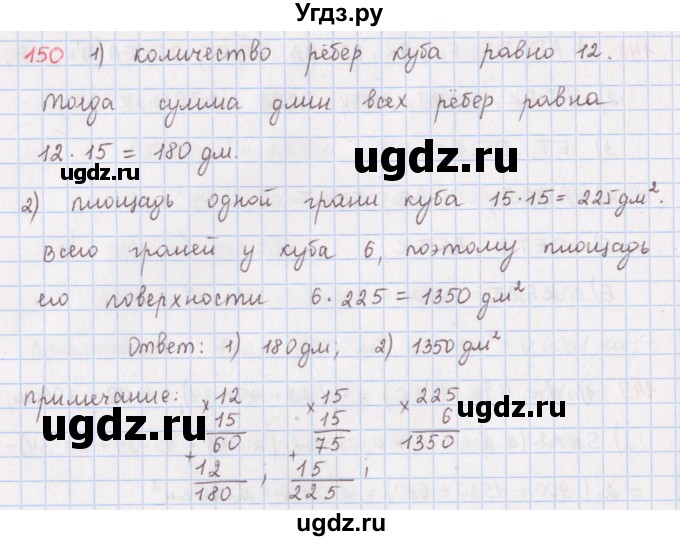 Угдз.ру
150 1) количество рёбер куба равно 12.
Тогда сумма длин всех рёбер равна
12 · 15 = 180 дм.
ugdz.ru ugdz.ru
2) площадь одной грани куба 15·15 = 225 дм².
ugdz.ru
Всего граней у куба 6, поэтому площадь
его поверхности 6 · 225 = 1350 дм²
Ответ: 1) 180 дм; 2) 1350 дм²
ugdz.ru
примечание: × 12 × 15 × 225
15 15 6
ugdz.ru ugdz.ru
60 75 1350
+ 12 + 15
180 ; 225 ;
ugdz.ru